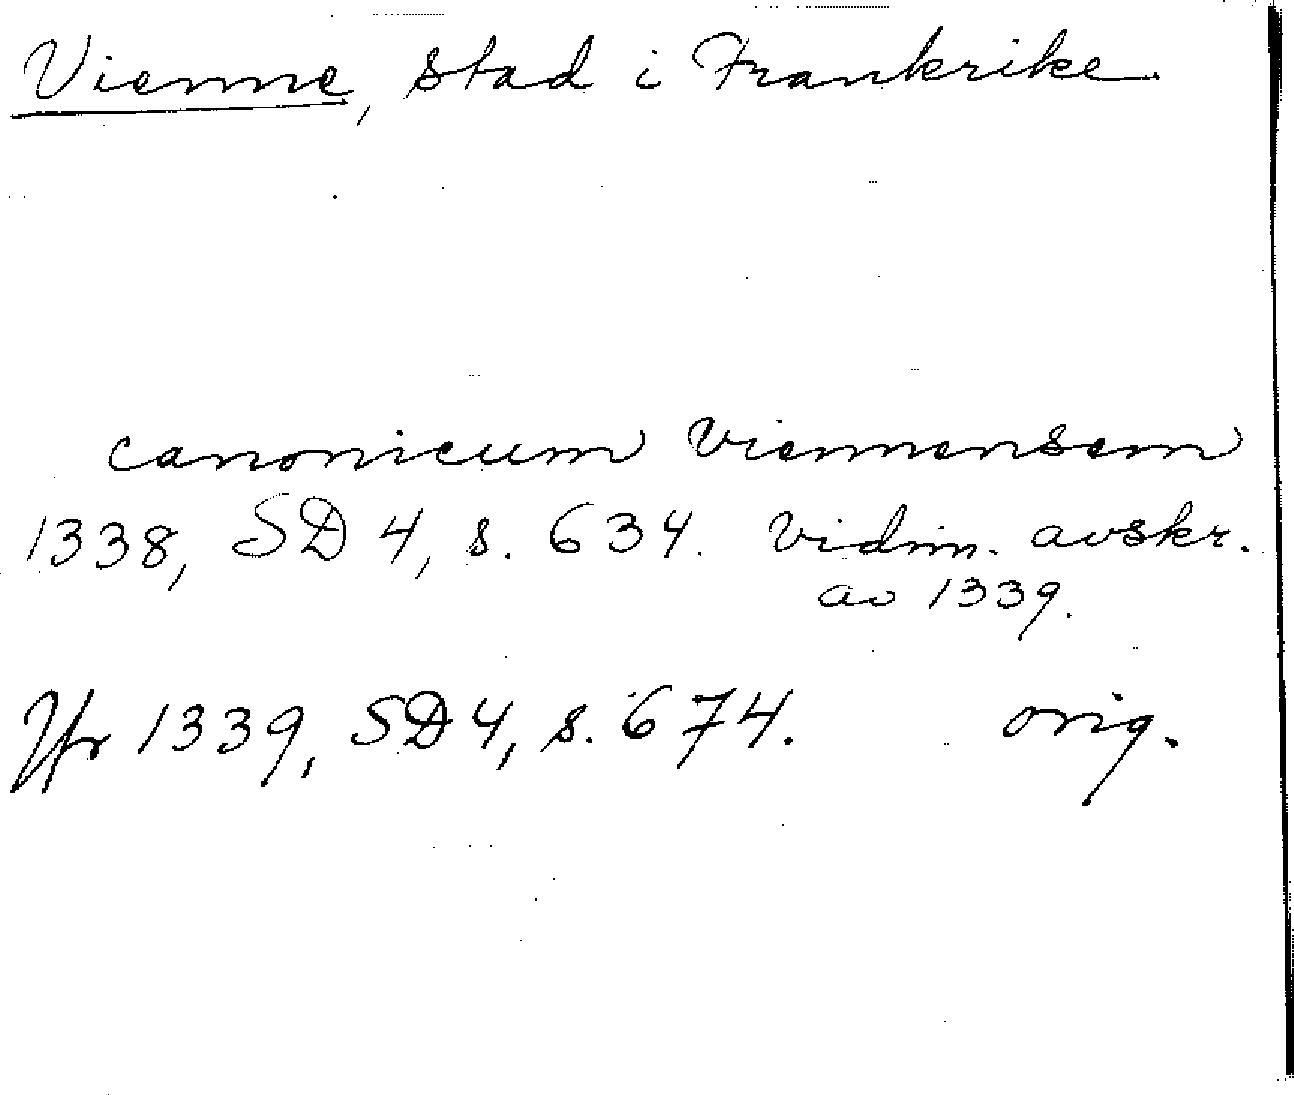 Vienne, stad i Frankrike
canonicum Viennensem
1338, SD 4, s. 634. Vidim. avskr.
av 1339.
Jfr 1339, SD 4, s. 674. orig.